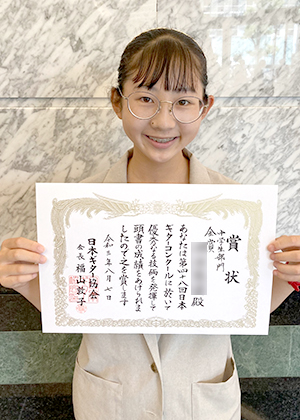 賞状
中学生部門
金賞
殿
あなたは第四十八回日本
ギターコンクールに於いて
優秀なる技倆を発揮して
頭書の成績をあげられま
したので之を賞します
令和五年八月七日
日本ギター協会
会長 福山敦子